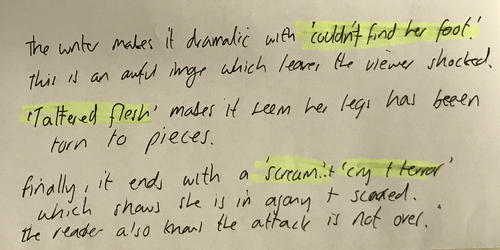 The writer makes it dramatic with 'couldn't find her foot.'
This is an awful image which leaves the viewer shocked.
'Tattered flesh' makes it seem her legs has been
torn to pieces.
Finally, it ends with a 'scream' + 'cry + terror'
which shows she is in agony + scared.
The reader also knows the attack is not over.